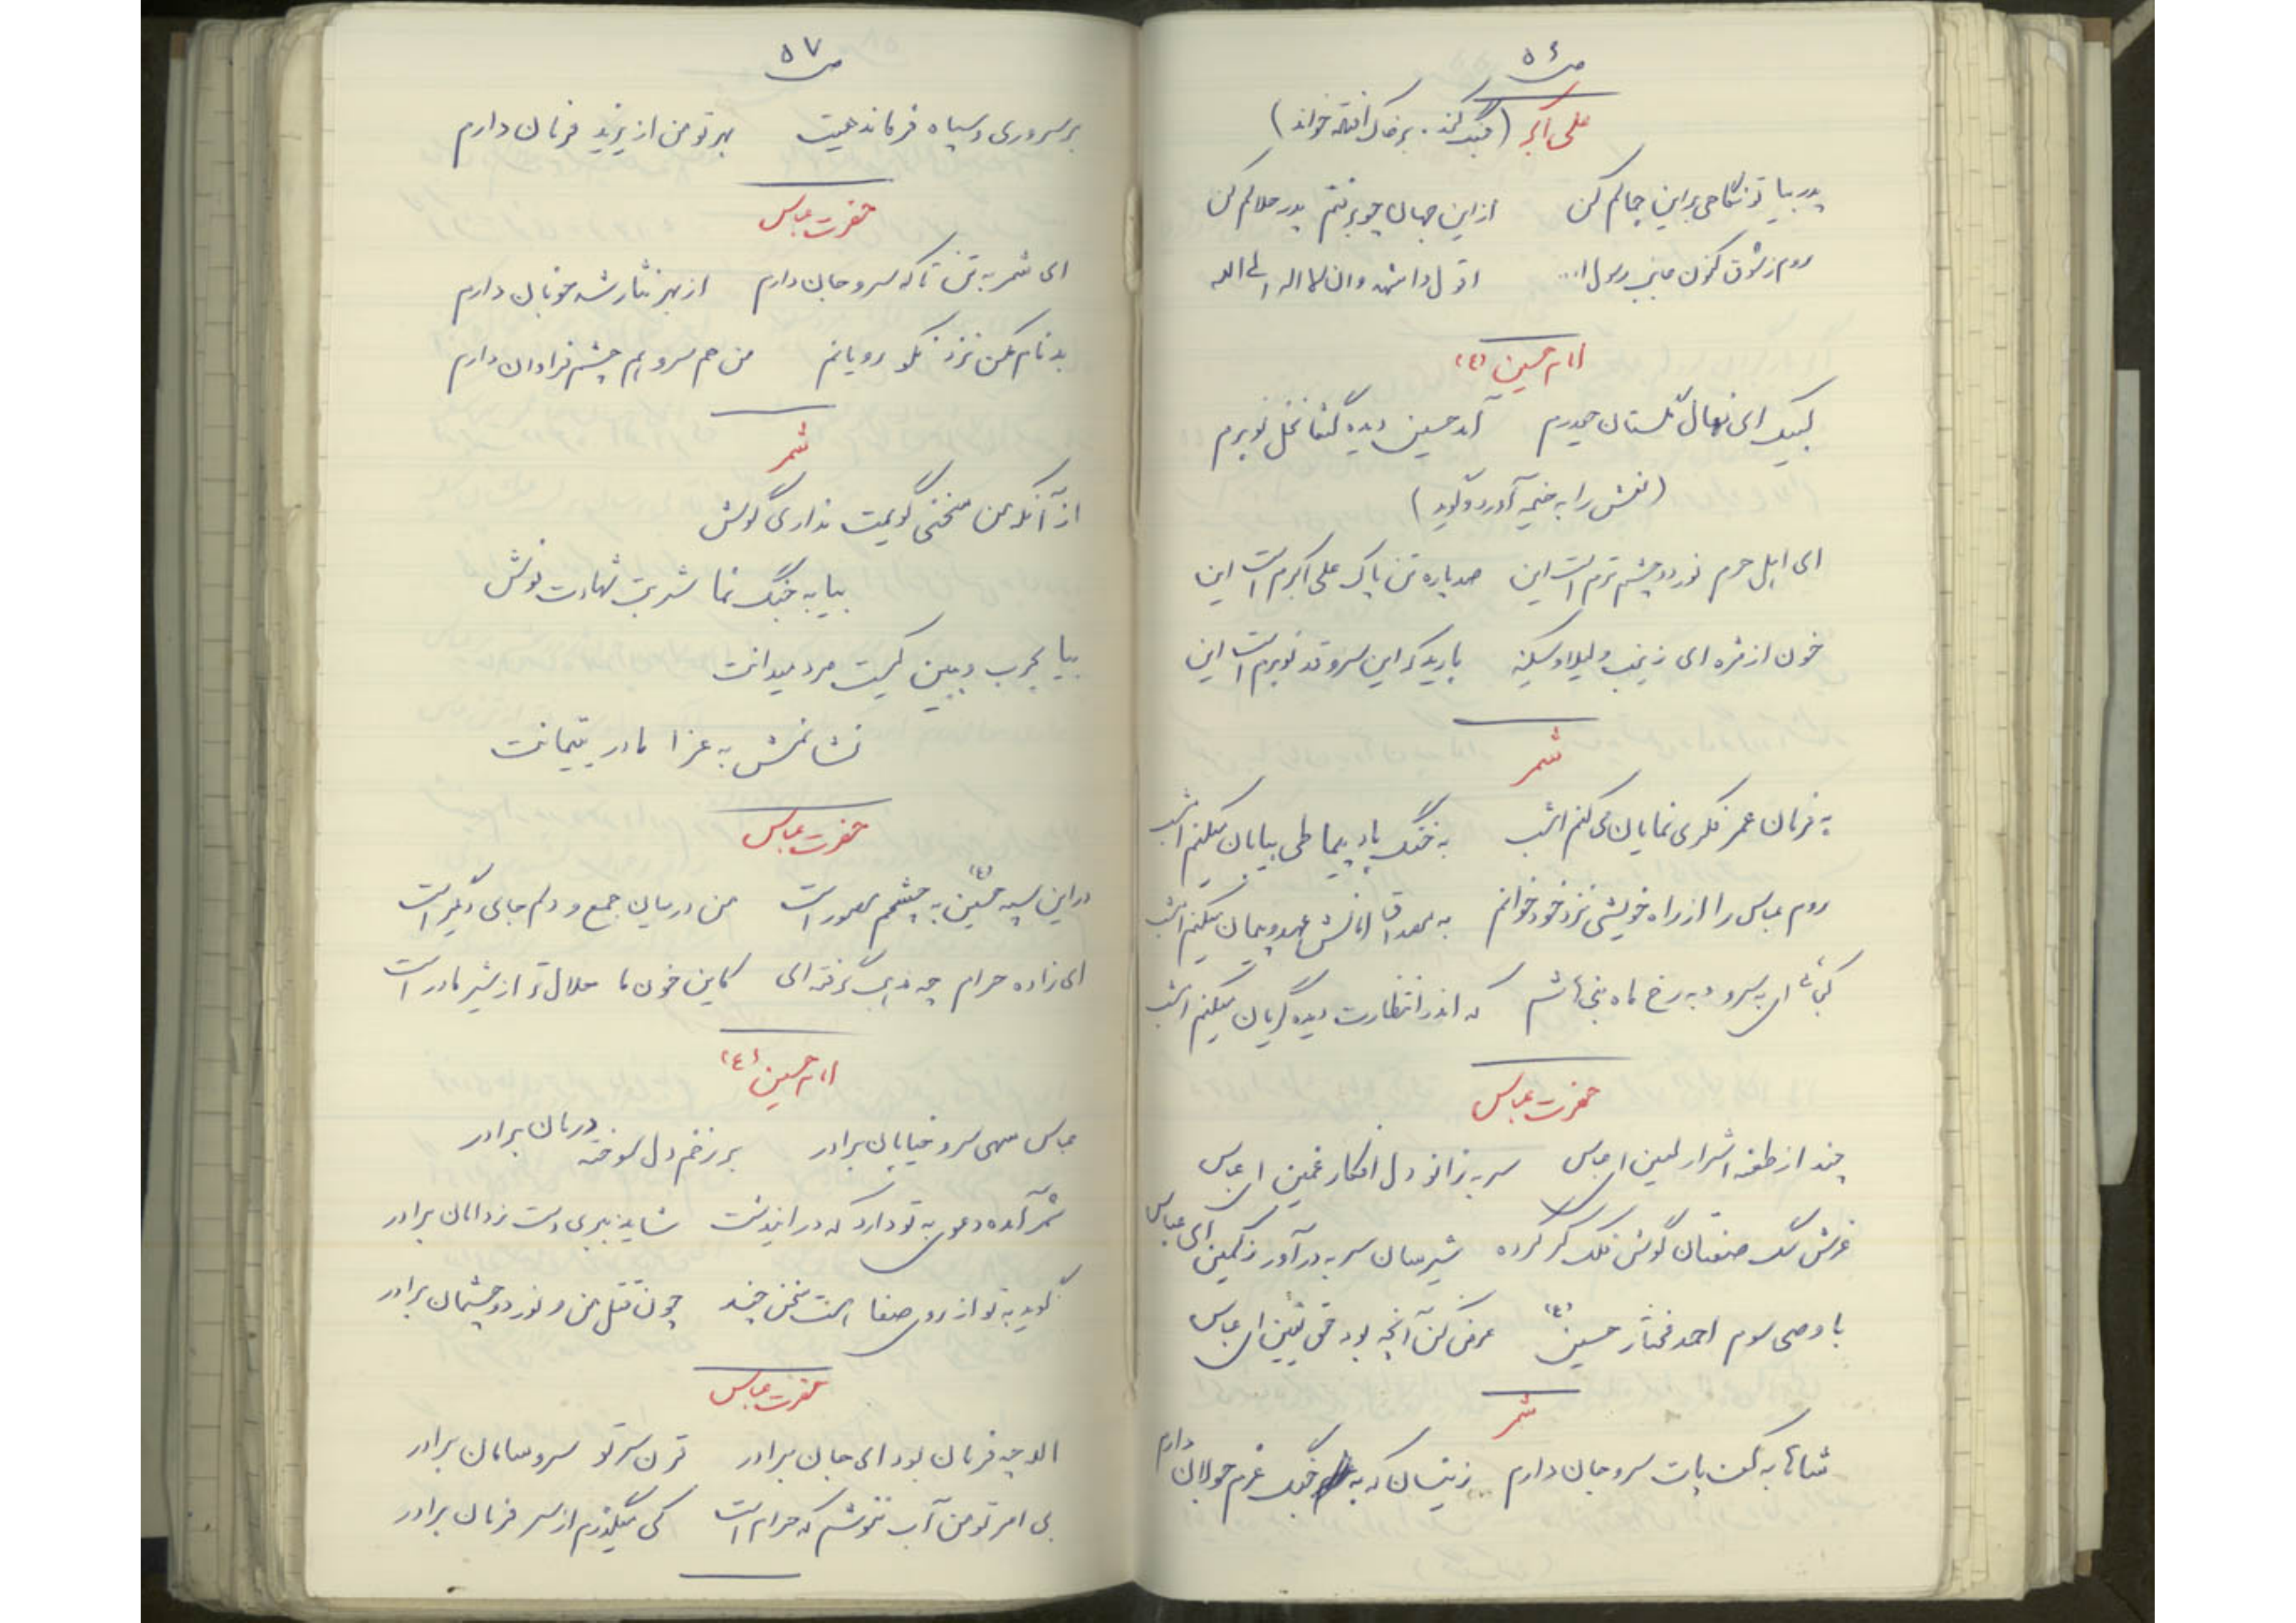 ص ۵۶
علی اکبر (جنگ کند. بر خاک افتد خواند)
پدر بیا تو نگاهی بر این جمالم کن از این جهان چو برفتم پدر حلالم کن
روم ز شوق کنون جانب رسول ا... اقول و اشهد وان لا اله الی الله
امام حسین (ع)
لبیک ای نهال گلستان حیدرم آمد حسین دیده گشا نخل نوبرم
(نعش را به خیمه آورد و گوید)
ای اهل حرم نور دو چشم ترم است این صد پاره تن پاک علی اکبرم است این
خون از مژه ای زینب و لیلا و سکینه بارید که این سرو قد نوبرم است این
شمر
به فرمان عمر فکری نمایان می کنم امشب به خنگ باد پیما طی بیابان میکنم امشب
روم عباس را از راه خویشی نزد خود خوانم به مصداق امانش عهد و پیمان میکنم امشب
کجائی ای به سرو و به رخ ماه بنی هاشم که اندر انتظارت دیده گریان میکنم امشب
حضرت عباس
چند از طعنه اشرار لعین ای عباس سر به زانو دل افکار غمین ای عباس
غرش سگ صفتان گوش فلک کر کرده شیر سان سر به در آور ز کمین ای عباس
با وصی سوم احمد مختار حسین (ع) عرض کن آنچه بود حق یقین ای عباس
شمر
شاها به کف پات سر و جان دارم زینسان که به خنگ عزم جولان دارم
ص ۵۷
بر سروری و سپاه فرماندهیت بهر تو من از یزید فرمان دارم
حضرت عباس
ای شمر به تن تا که سر و جان دارم از بهر نثار شه خوبان دارم
بدنام مکن نزد نکو رویانم من هم سر و هم چشم فراوان دارم
شمر
از آنکه من سخنی گویمت نداری گوش
بیا به جنگ نما شربت شهادت نوش
بیا بحرب و ببین کیست مرد میدانت
نشانمش به عزا مادر یتیمانت
حضرت عباس
در این سپه حسین (ع) به چشمم مصور است من در میان جمع و دلم جای دیگر است
ای زاده حرام چه مذهب گرفته ای کاین خون ما حلال تر از شیر مادر است
امام حسین (ع)
عباس سهی سرو خیابان برادر بر زخم دل سوخته درمان برادر
شمر آمده دعوی به تو دارد که در اینشت شاید ببری دست ز دامان برادر
گوید به تو از روی صفا هست سخن چند چون قتل من و نور دو چشمان برادر
حضرت عباس
الله چه فرمان بود ای جان برادر قربان سر تو سر و سامان برادر
بی امر تو من آب ننوشم که حرام است کی میگذرم از سر فرمان برادر